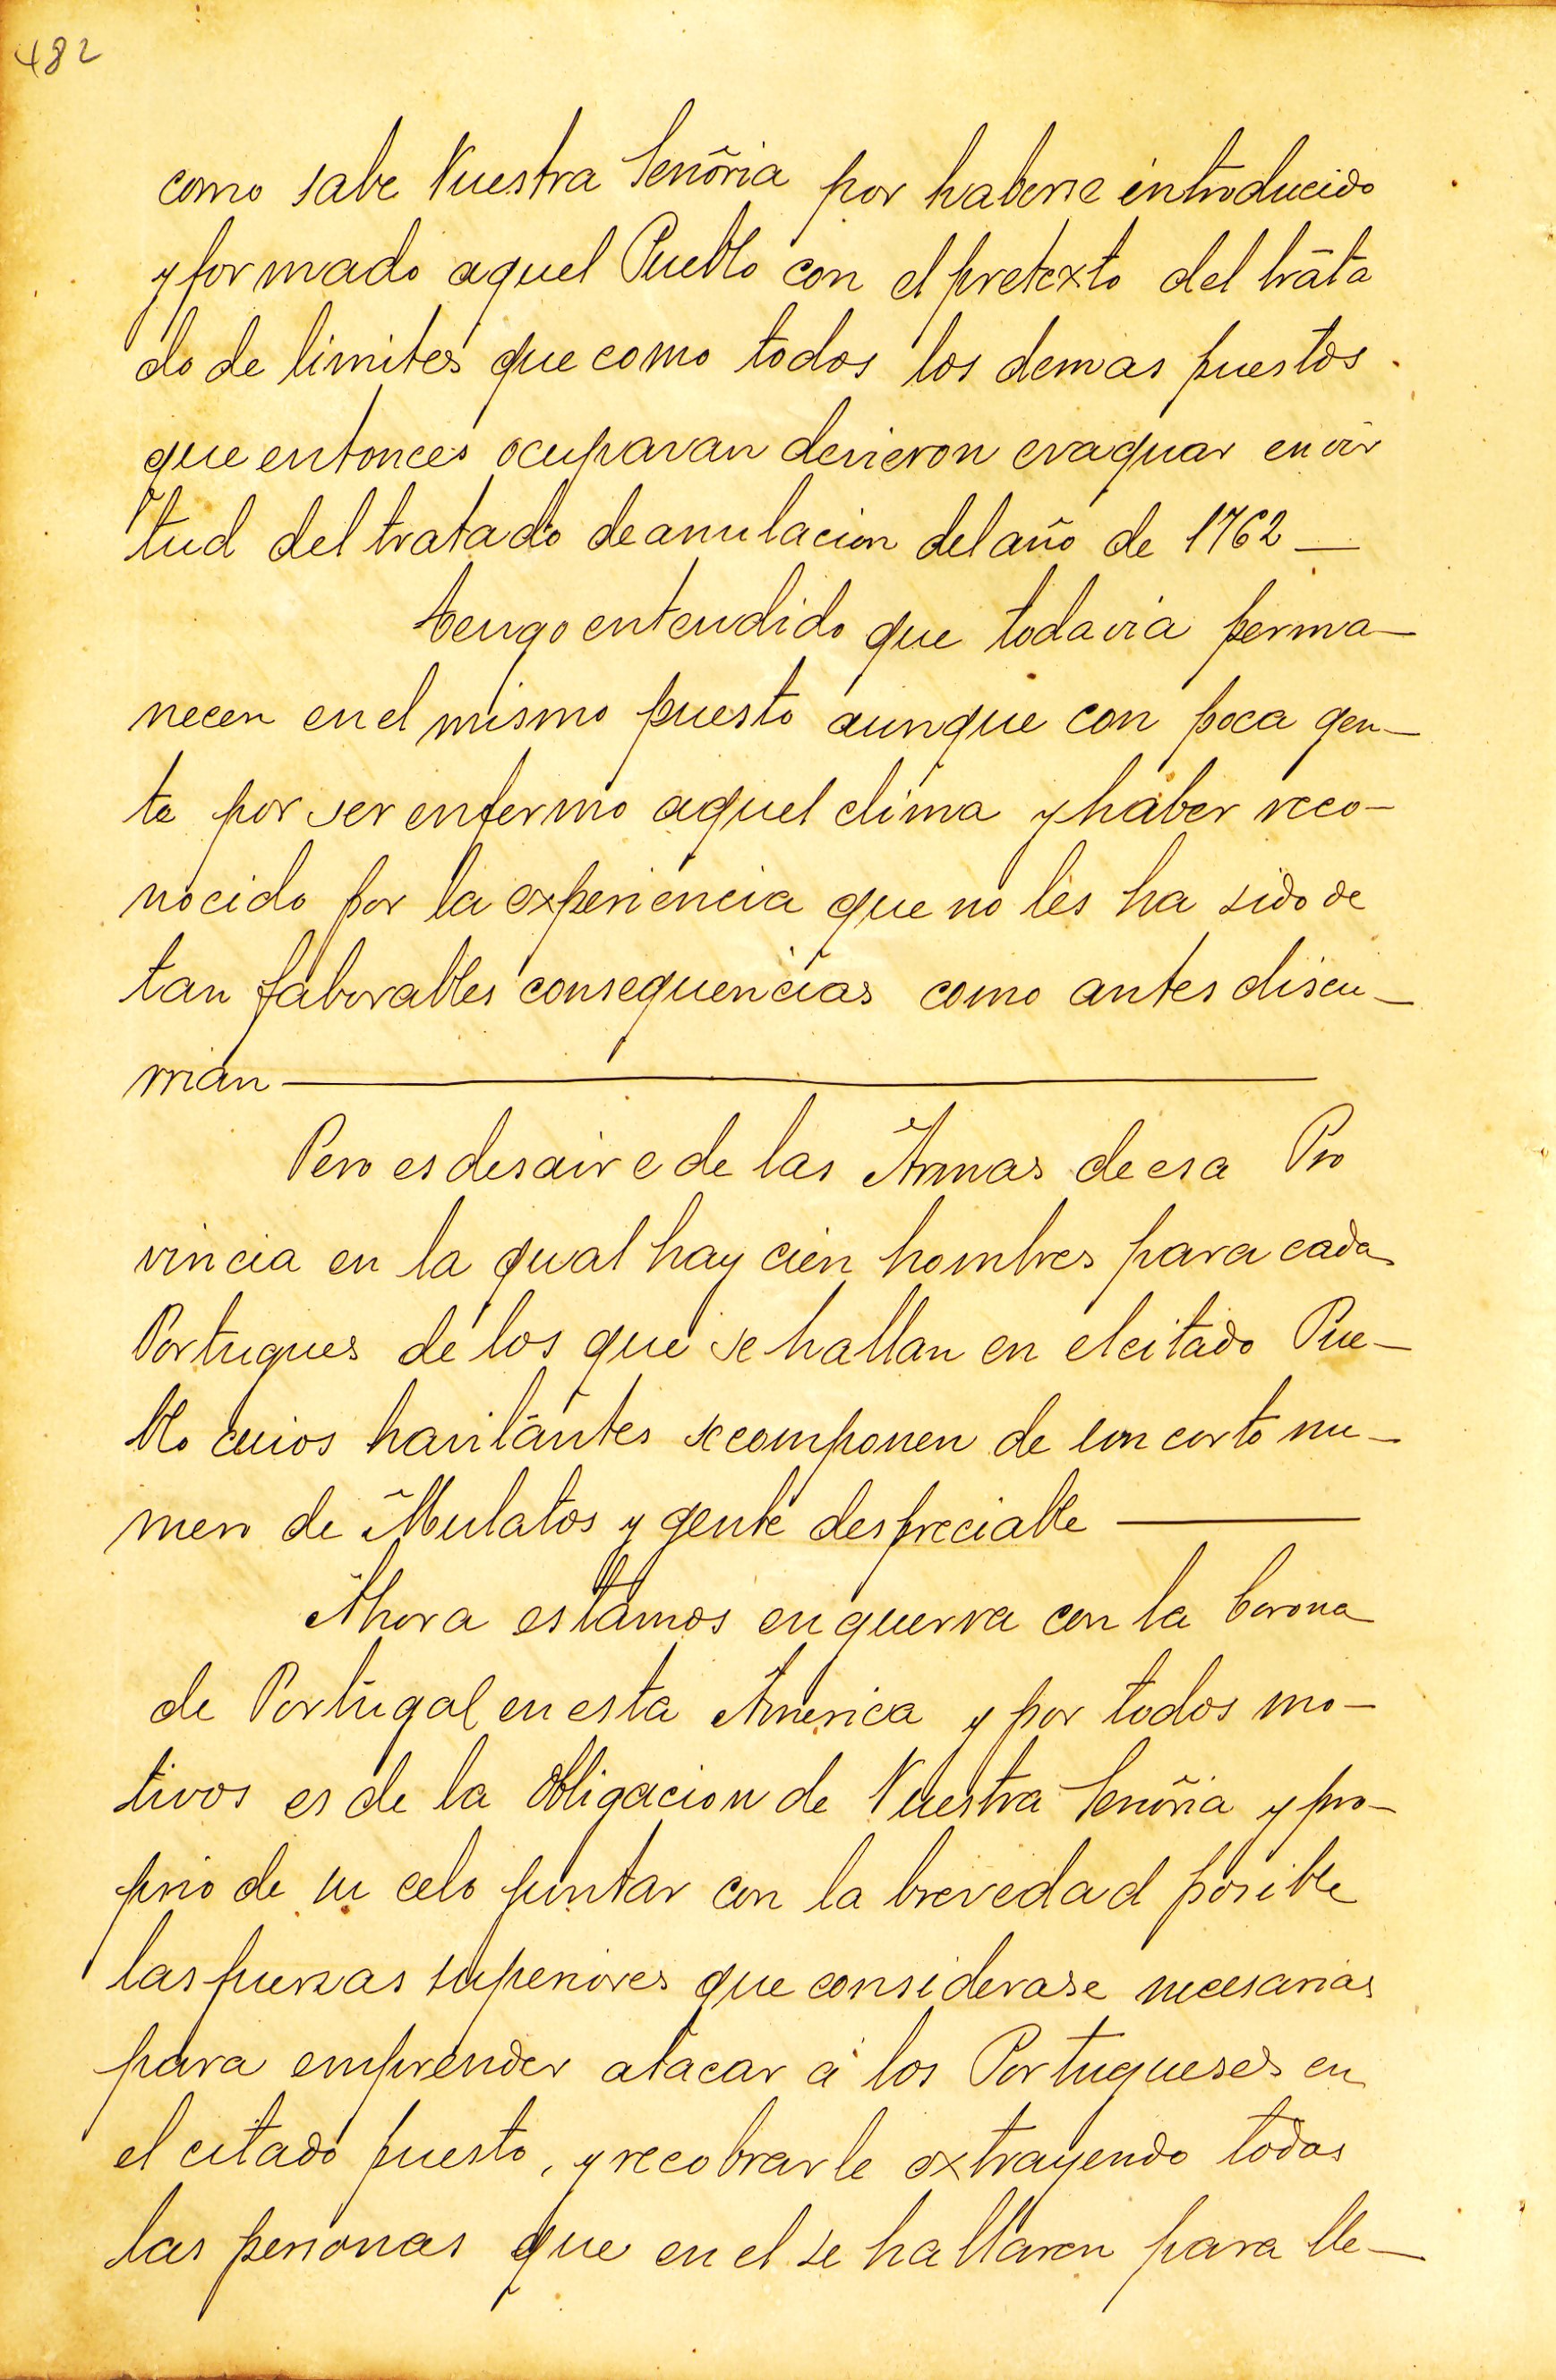 482
como sabe Vuestra Señoria por haberse introducido
y formado aquel Pueblo con el pretexto del trata
do de limites que como todos los demas puestos
que entonces ocupavan devieron evaquar en vir
tud del tratado de anulacion del año de 1762 —
tengo entendido que todavia perma—
necen en el mismo puesto aunque con poca gen—
te por ser enfermo aquel clima y haber reco—
nocido por la experiencia que no les ha sido de
tan faborables consequencias como antes discu—
rrian —
Pero es desaire de las Armas de esa Pro
vincia en la qual hay cien hombres para cada
Portugues de los que se hallan en el citado Pue—
blo cuios havitantes se componen de un corto nu—
mero de Mulatos y gente despreciable —
Ahora estamos en guerra con la Corona
de Portugal en esta America y por todos mo—
tivos es de la obligacion de Vuestra Señoria y pro—
prio de su celo juntar con la brevedad posible
las fuerzas superiores que considerase necesarias
para emprender atacar á los Portugueses en
el citado puesto, y recobrarle extrayendo todas
las personas que en el se hallaren para lle—